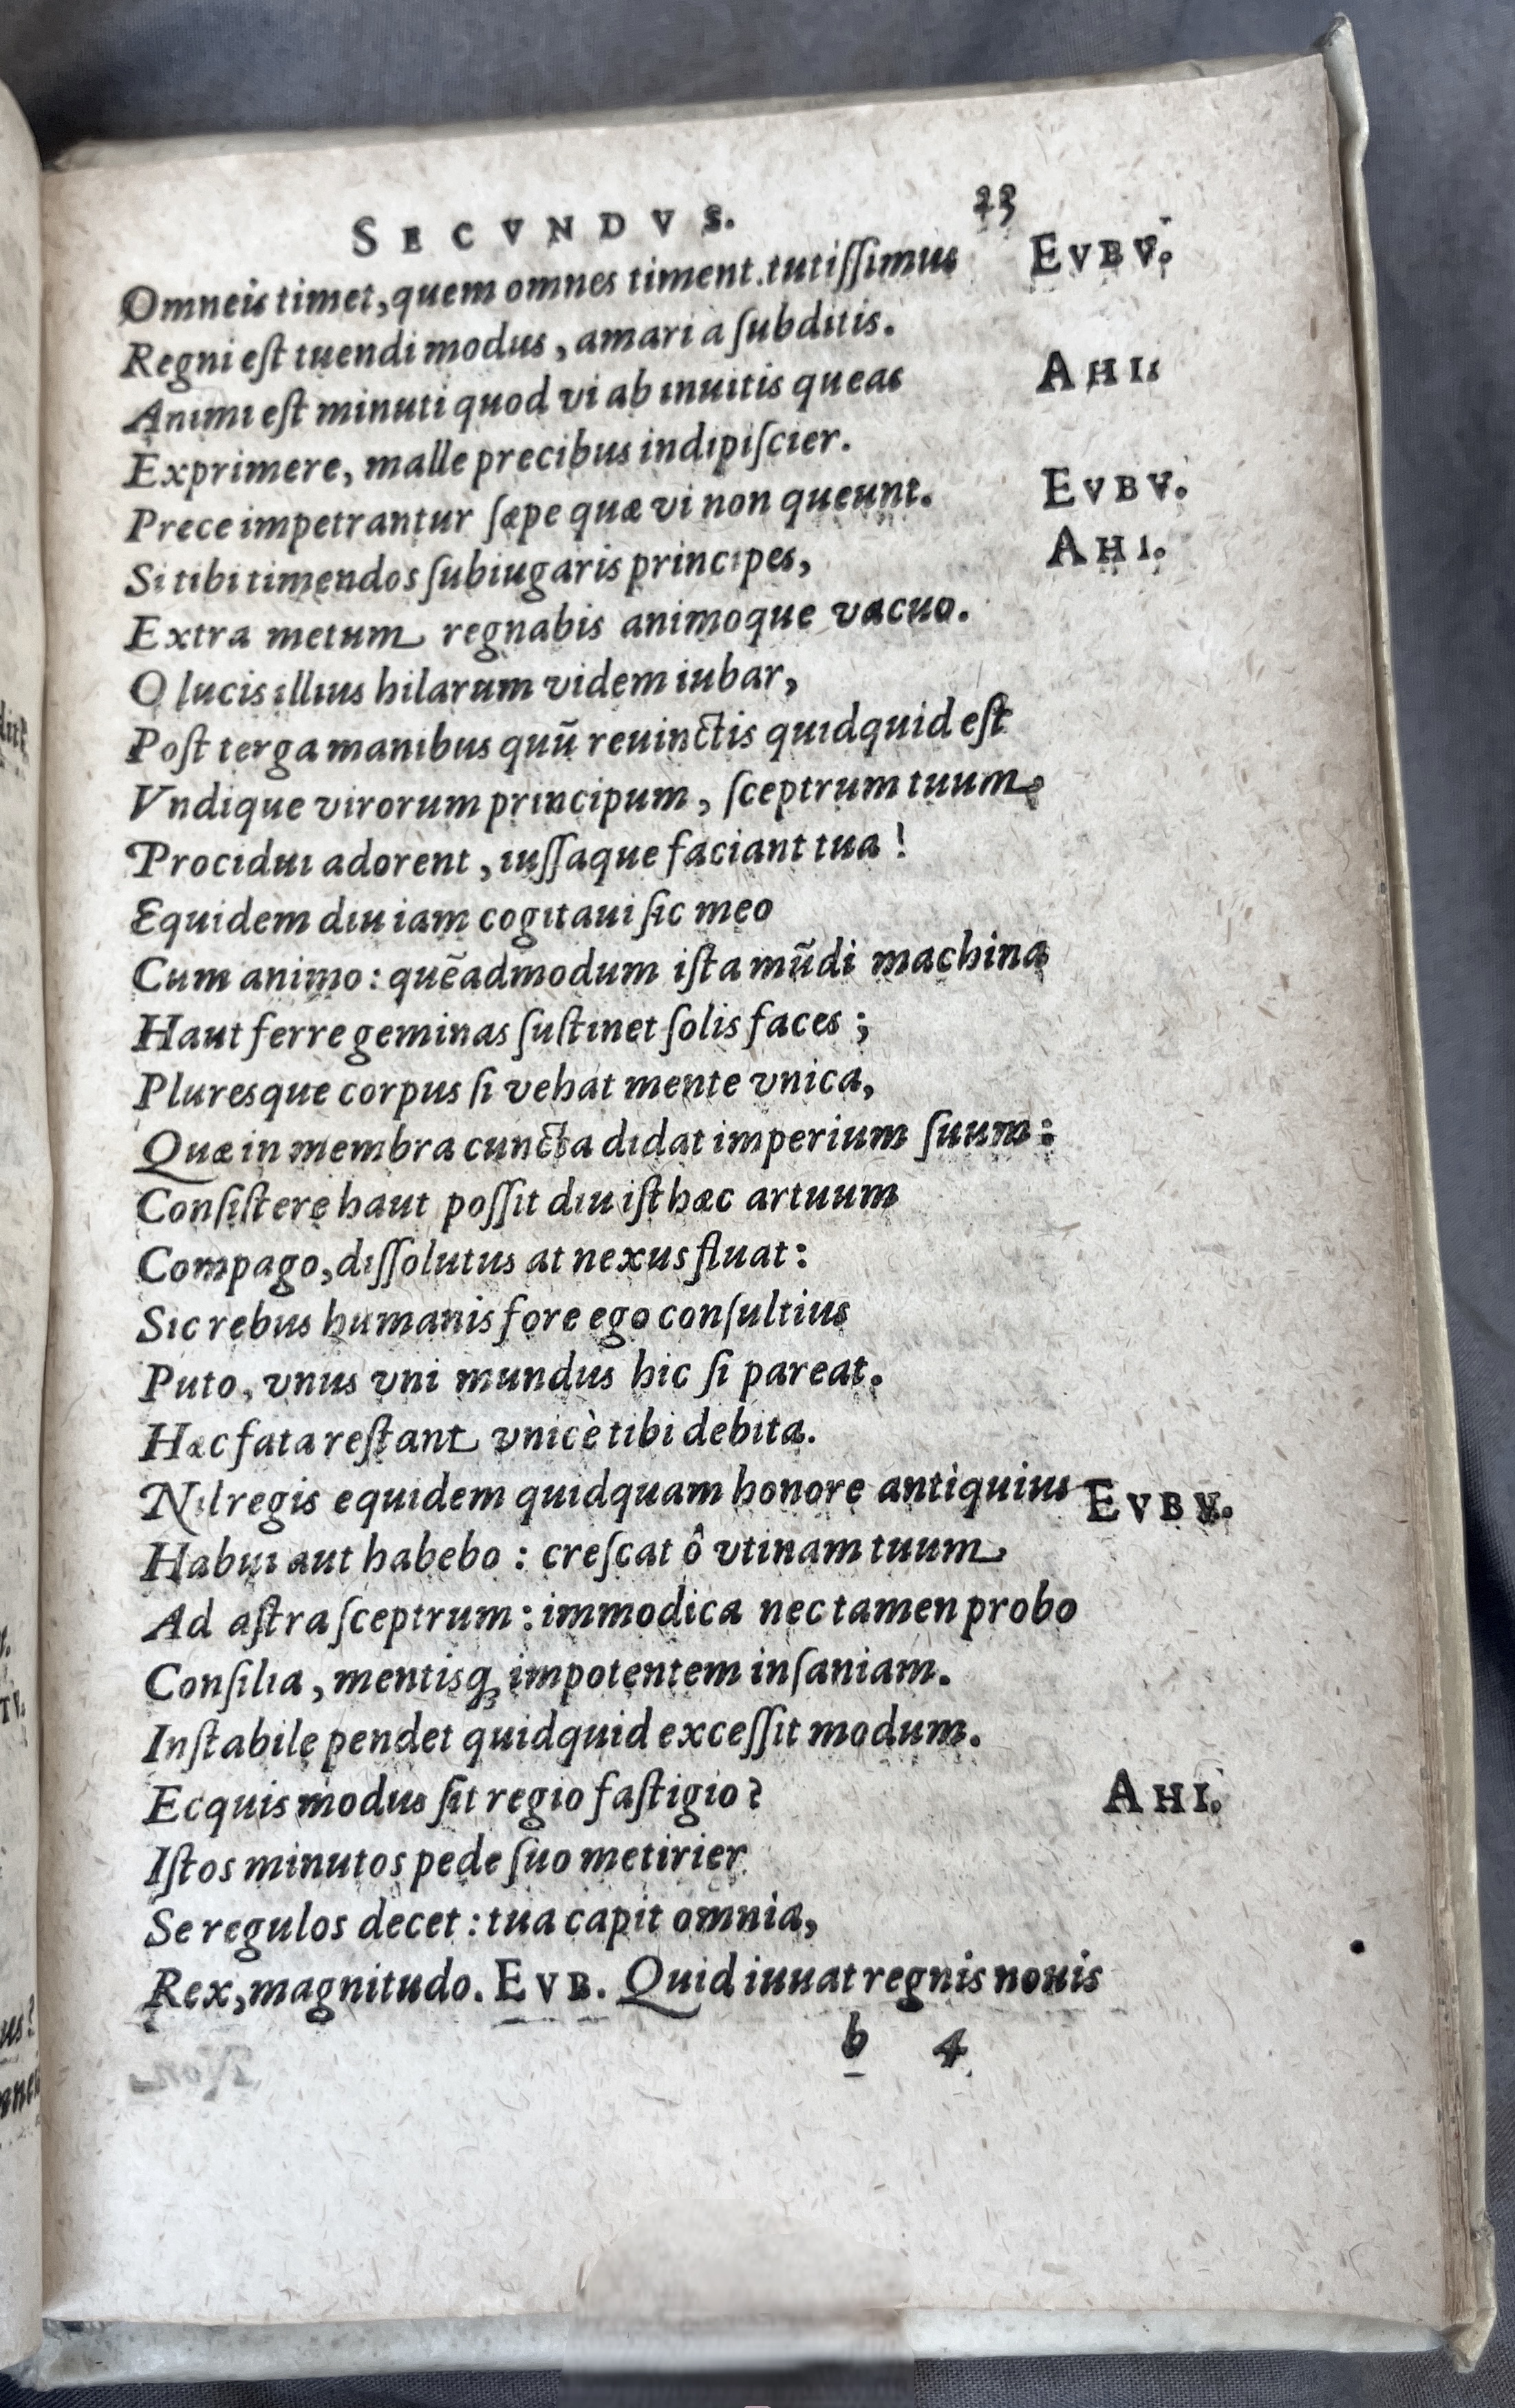 SECVNDVS. 23
Omneis timet, quem omnes timent. tutiſſimus EVBV.
Regni eſt tuendi modus, amari a ſubditis.
Animi eſt minuti quod vi ab inuitis queas AHI.
Exprimere, malle precibus indipiſcier.
Prece impetrantur ſæpe quæ vi non queunt. EVBV.
Si tibi timendos ſubiugaris principes, AHI.
Extra metum regnabis animoque vacuo.
O lucis illius hilarum videm iubar,
Poſt terga manibus quũ reuinctis quidquid eſt
Vndique virorum principum, ſceptrum tuum
Procidui adorent, iuſſaque faciant tua!
Equidem diu iam cogitaui ſic meo
Cum animo: quẽadmodum iſta mũdi machina
Haut ferre geminas ſuſtinet ſolis faces;
Pluresque corpus ſi vehat mente vnica,
Quæ in membra cuncta didat imperium ſuum:
Conſiſtere haut poſſit diu iſthæc artuum
Compago, diſſolutus at nexus fluat:
Sic rebus humanis fore ego conſultius
Puto, vnus vni mundus hic ſi pareat.
Hæc fata reſtant vnicè tibi debita.
Nil regis equidem quidquam honore antiquius EVBV.
Habui aut habebo: creſcat ô vtinam tuum
Ad aſtra ſceptrum: immodica nec tamen probo
Conſilia, mentisq; impotentem inſaniam.
Inſtabile pendet quidquid exceſſit modum.
Ecquis modus ſit regio faſtigio? AHI.
Iſtos minutos pede ſuo metirier
Se regulos decet: tua capit omnia,
Rex, magnitudo. EVB. Quid iuuat regnis nouis
b 4